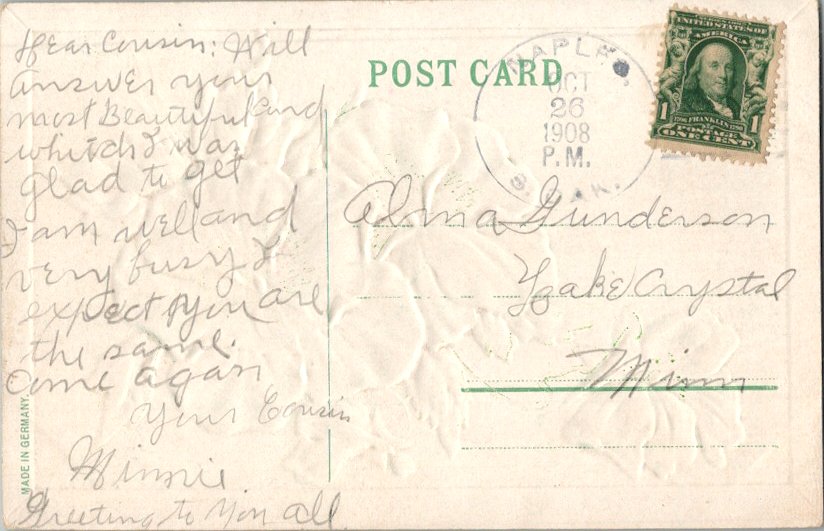 Dear Cousin: Will
answer your
most Beautiful Card
whitch I was
glad to get
I am well and
very busy I
expect you are
the same.
Come again
Your Cousin
Minnie
Greeting to You all
MADE IN GERMANY.
POST CARD
MAPLE
OCT
26
1908
P.M.
DAK.
UNITED STATES OF
AMERICA
1 1
FRANKLIN
POSTAGE
ONE CENT
Alma Gunderson
Lake Crystal
Minn